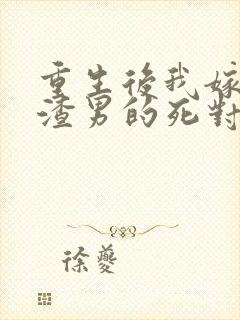 重生後我嫁
渣男的死對
徐夔